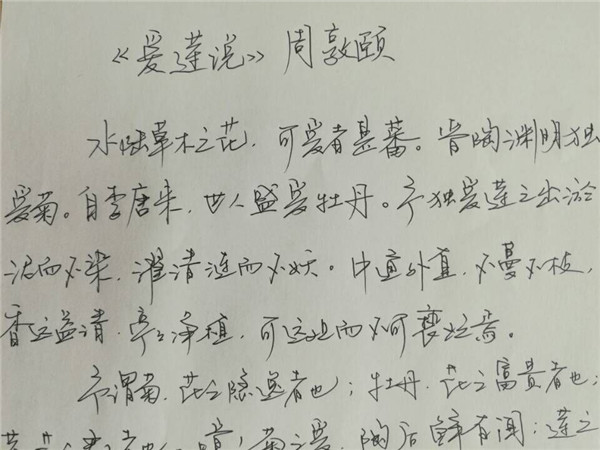 《爱莲说》 周敦颐
水陆草木之花，可爱者甚蕃。晋陶渊明独
爱菊。自李唐来，世人盛爱牡丹。予独爱莲之出淤
泥而不染，濯清涟而不妖。中通外直，不蔓不枝，
香远益清，亭亭净植，可远观而不可亵玩焉。
予谓菊，花之隐逸者也；牡丹，花之富贵者也；
者也 菊之爱，陶后鲜有闻；莲之